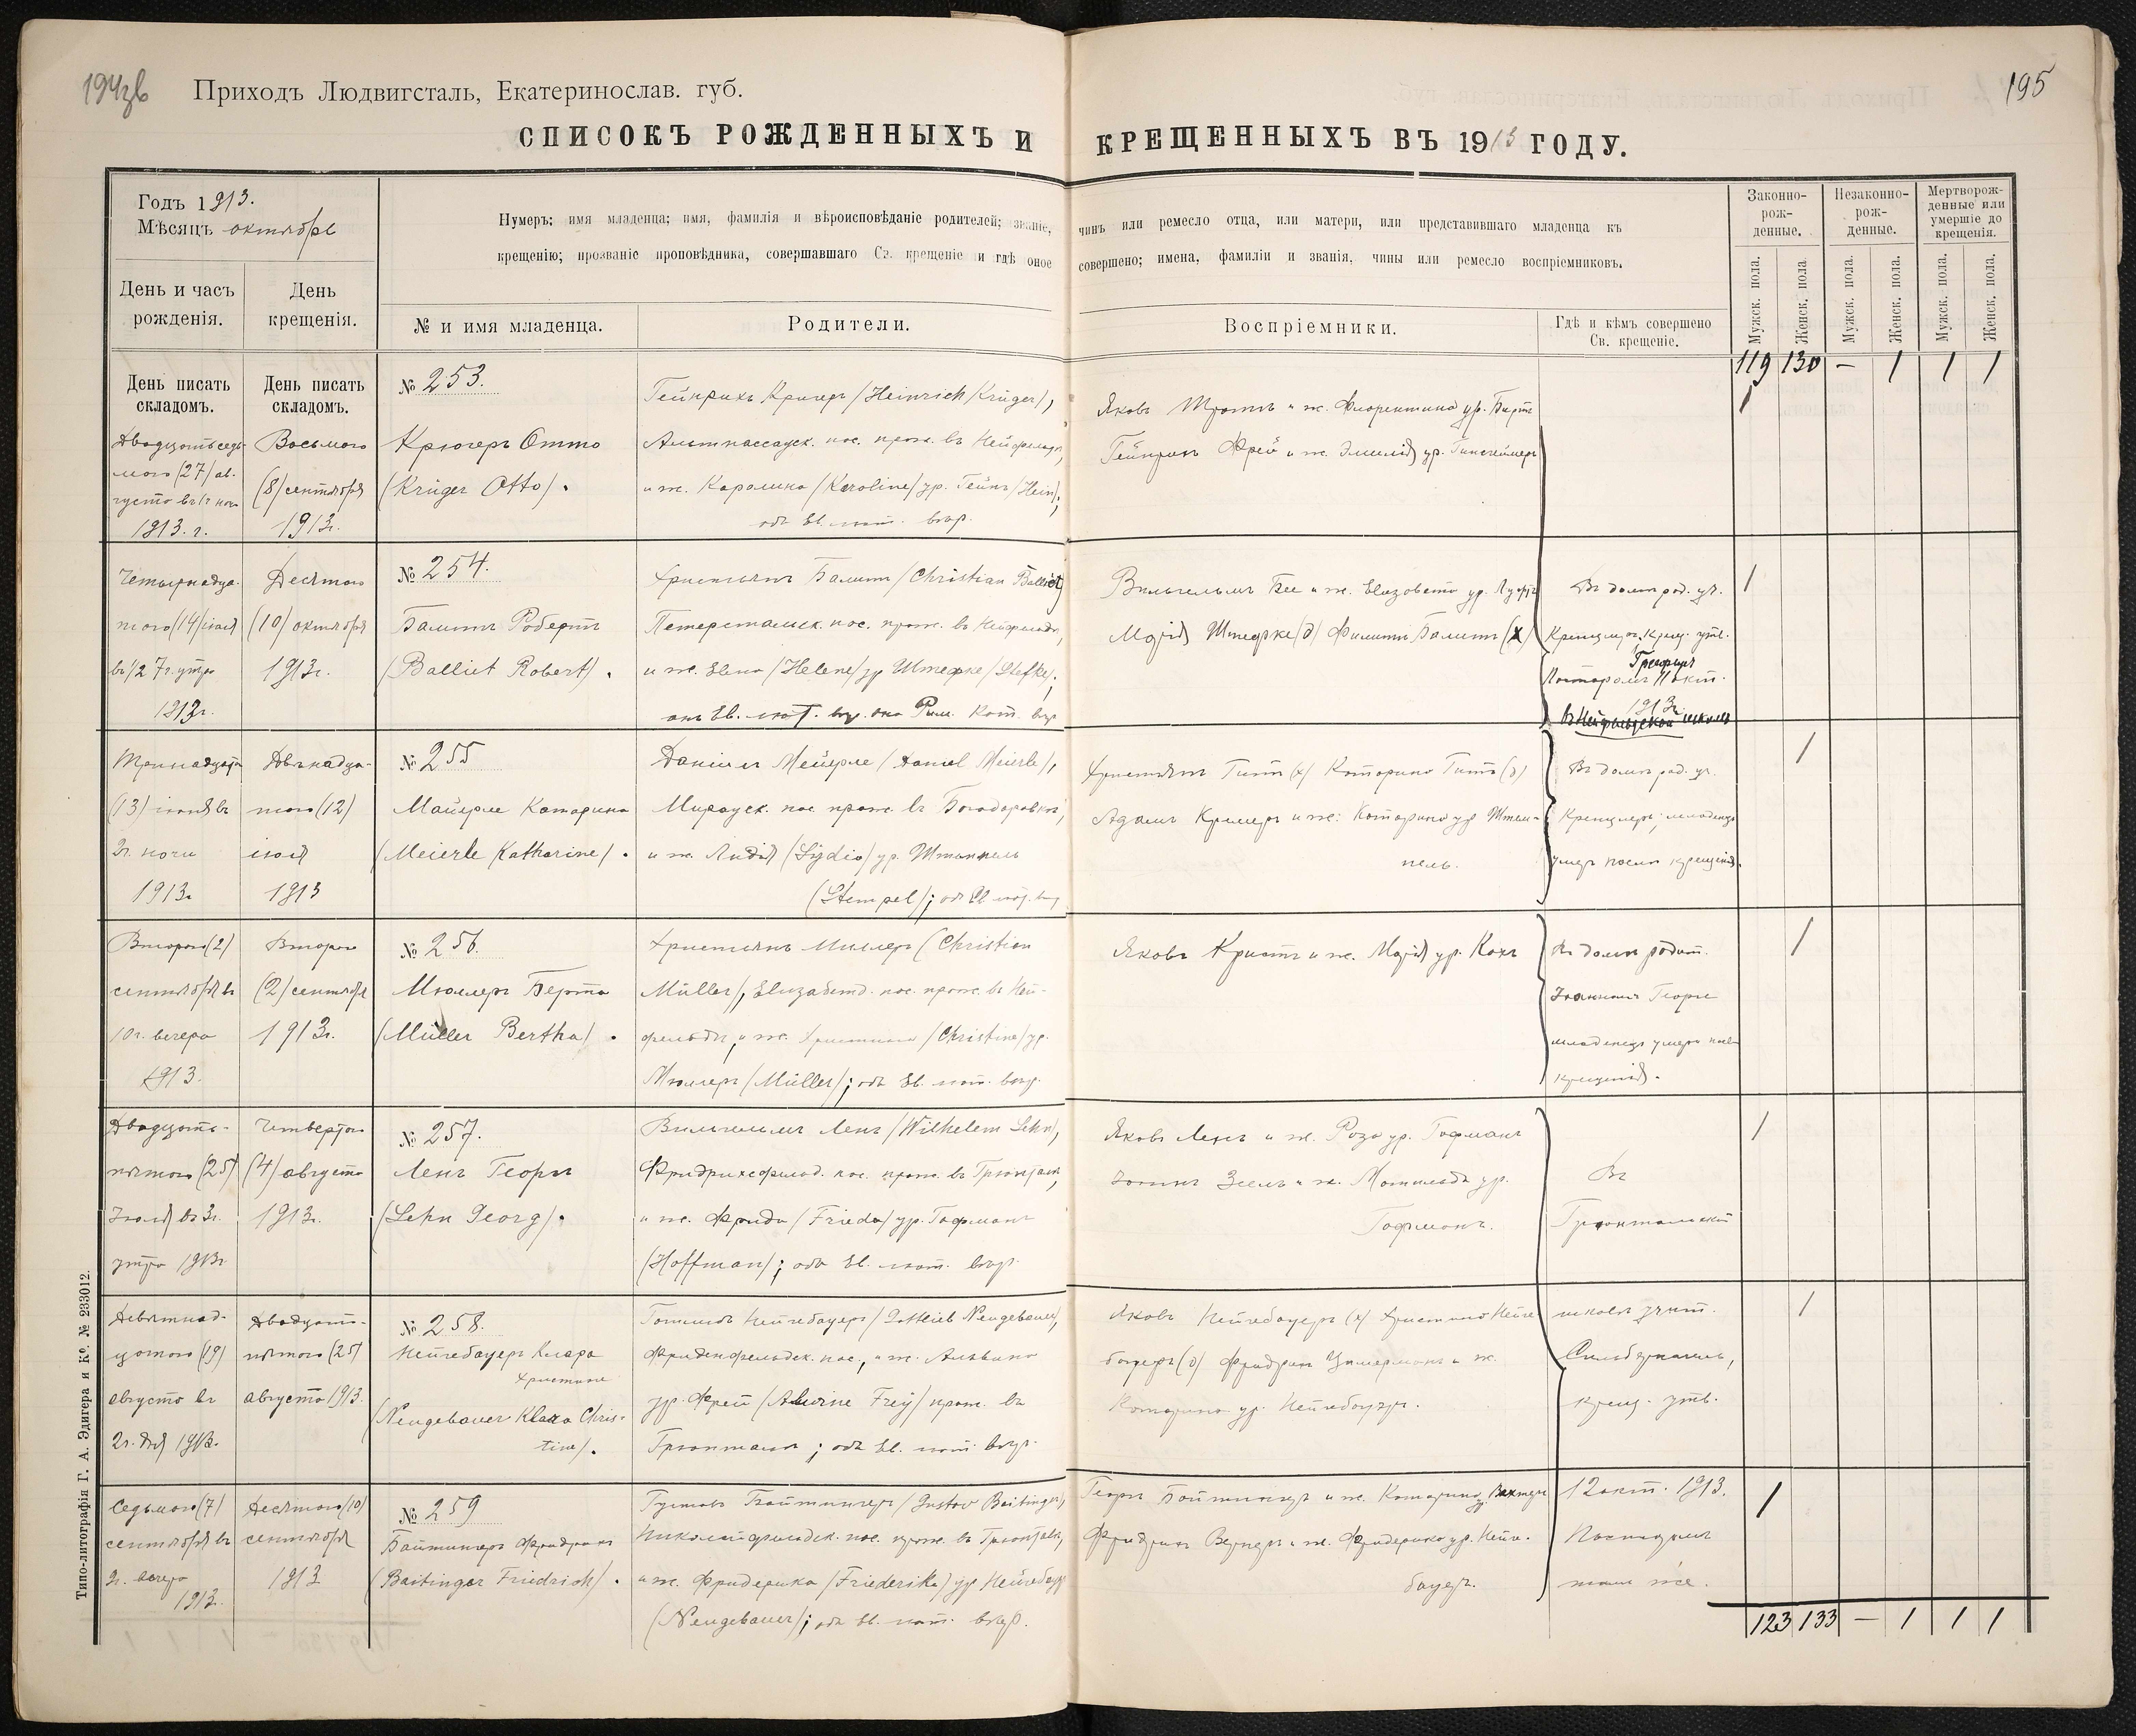 194зв
195
Приходъ Людвигсталь, Екатеринослав. губ.
СПИСОКЪ РОЖДЕННЫХЪ И КРЕЩЕННЫХЪ ВЪ 1913 ГОДУ.
Годъ 1913.
Мѣсяцъ октябрь
День и часъ рожденія.
День крещенія.
Нумеръ; имя младенца; имя, фамилія и вѣроисповѣданіе родителей; званіе, чинъ или ремесло отца, или матери, или представившаго младенца къ
крещенію; прозваніе проповѣдника, совершавшаго Св. крещеніе и гдѣ оное совершено; имена, фамиліи и званія, чины или ремесло воспріемниковъ.
№ и имя младенца.
Родители.
Воспріемники.
Гдѣ и кѣмъ совершено
Св. крещеніе.
Законно-
рож-
денные.
Незаконно-
рож-
денные.
Мертворож-
денные или
умершіе до
крещенія.
Мужск. пола.
Женск. пола
Мужск. пола.
Женск. пола.
Мужск. пола.
Женск. пола.
119 130 — 1 1 1
День писать
складомъ.
День писать
складомъ.
№ 253.
Двадцать седь-
мого (27) ав-
густа
1913. г.
Восьмого
(8) сентября
1913г.
Крюгеръ Отто
(Krüger Otto).
Гейнрихъ Крюгеръ (Heinrich Krüger),
пос. прож. въ Нейфельдѣ,
и ж. Каролина (Karoline) ур. Гейнъ (Hein);
оба Ев. лют. вѣр.
Яковъ и ж. Флорентина ур.
Гейнрихъ Фрей и ж. Эмилія ур.
1
Четырнадца-
того (14) іюля
въ 1/2 7 г. утра
1913г.
Десятого
(10) октября
1913г.
№ 254.
Балитъ Робертъ
(Balliet Robert).
Христьянъ Балитъ (Christian Balliet)
пос. прож. въ Нейфельдѣ,
и ж. Елена (Helene) ур Штефке (Stefke);
онъ Ев. лют. вѣр. она Рим. Кат. вѣр
Вильгельмъ Бее и ж. Елизавета ур.
Марія Штефке (д) Филиппъ Балитъ (х)
Въ домѣ род. уч.
Кренцлеръ, крещ. утв.
Пасторомъ 11 окт.
1913г.
1
Тринадцата
(13) іюня въ
2г. ночи
1913г
Двѣнадца-
того (12)
іюля
1913
№ 255
Майерле Катарина
(Meierle Katharine).
Даніилъ Мейерле (Daniel Meierle),
пос прож. въ
и ж. Лидія (Lydia) ур. Штемпель
(Stempel); оба Ев лют. вѣр
Христьянъ Гитъ (х) Катарина Гитъ (д)
Адамъ Кремеръ и ж: Катарина ур Штем-
пель.
Въ домѣ род. уч.
Кренцлеръ; младенецъ
умеръ послѣ крещенія.
1
Второго (2)
сентября въ
10г. вечера
1913.
Второго
(2) сентября
1913г.
№ 256.
Мюллеръ Берта
(Müller Bertha).
Христьянъ Миллеръ (Christian
Müller), пос. прож. въ Ней-
фельдѣ, и ж. Христина (Christine) ур.
Мюлеръ (Müller); оба Ев. лют. вѣр.
Яковъ Кристъ и ж. Марія ур. Кохъ
Въ домѣ родит.
Георге
младенецъ умеръ послѣ
крещенія.
1
Двадцать-
пятого (25)
Іюля въ 3г.
утра 1913г
Четвертого
(4) августа
1913г.
№ 257.
Ленъ Георгъ
(Lehn Georg).
Вильгельмъ Ленъ (Wilhelm Lehn),
Фридрихсфельд. пос. прож. въ Грюнталѣ,
и ж. Фрида (Frieda) ур. Гофманъ
(Hoffman); оба Ев. лют. вѣр.
Яковъ Ленъ и ж. Роза ур. Гофманъ
и ж. Матильда ур.
Гофманъ.
Въ
Грюнтальской
1
Девятнад-
цатого (19)
августа въ
2г. дня 1913.
Двадцать-
пятого (25)
августа 1913.
№ 258.
Нейгебауеръ Клара
Христина
(Neugebauer Klara Chris-
tine).
Готлибъ Нейгебауеръ (Gottlieb Neugebauer),
Фриденфельдск. пос., и ж. Альвина
ур. Фрей (Alwine Frey) прож. въ
Грюнталѣ; оба Ев. лют. вѣр.
Яковъ Нейгебауеръ (х) Христина Нейге-
бауеръ (д) Фридрихъ Цимерманъ и ж.
Катарина ур. Нейгебауеръ.
школѣ учит.
крещ. утв.
1
Седьмого (7)
сентября въ
9г. вечера
1913.
Десятого (10)
сентября
1913
№ 259
Байтингеръ Фридрихъ
(Baitinger Friedrich).
Густавъ Байтингеръ (Gustav Baitinger),
Николайфельдск. пос. прож. въ Грюнталѣ,
и ж. Фридерика (Friederika) ур Нейгебауер
(Neugebauer); оба Ев. лют. вѣр.
Георгъ Байтингеръ и ж. Катарина ур. Вахтеръ
Фридрихъ Вернеръ и ж. Фридерика ур. Нейге-
бауеръ.
12 окт. 1913.
Пасторомъ
тамъ же.
1
123 133 — 1 1 1
Типо-литографія Г. А. Эдигера и К°. № 233012.